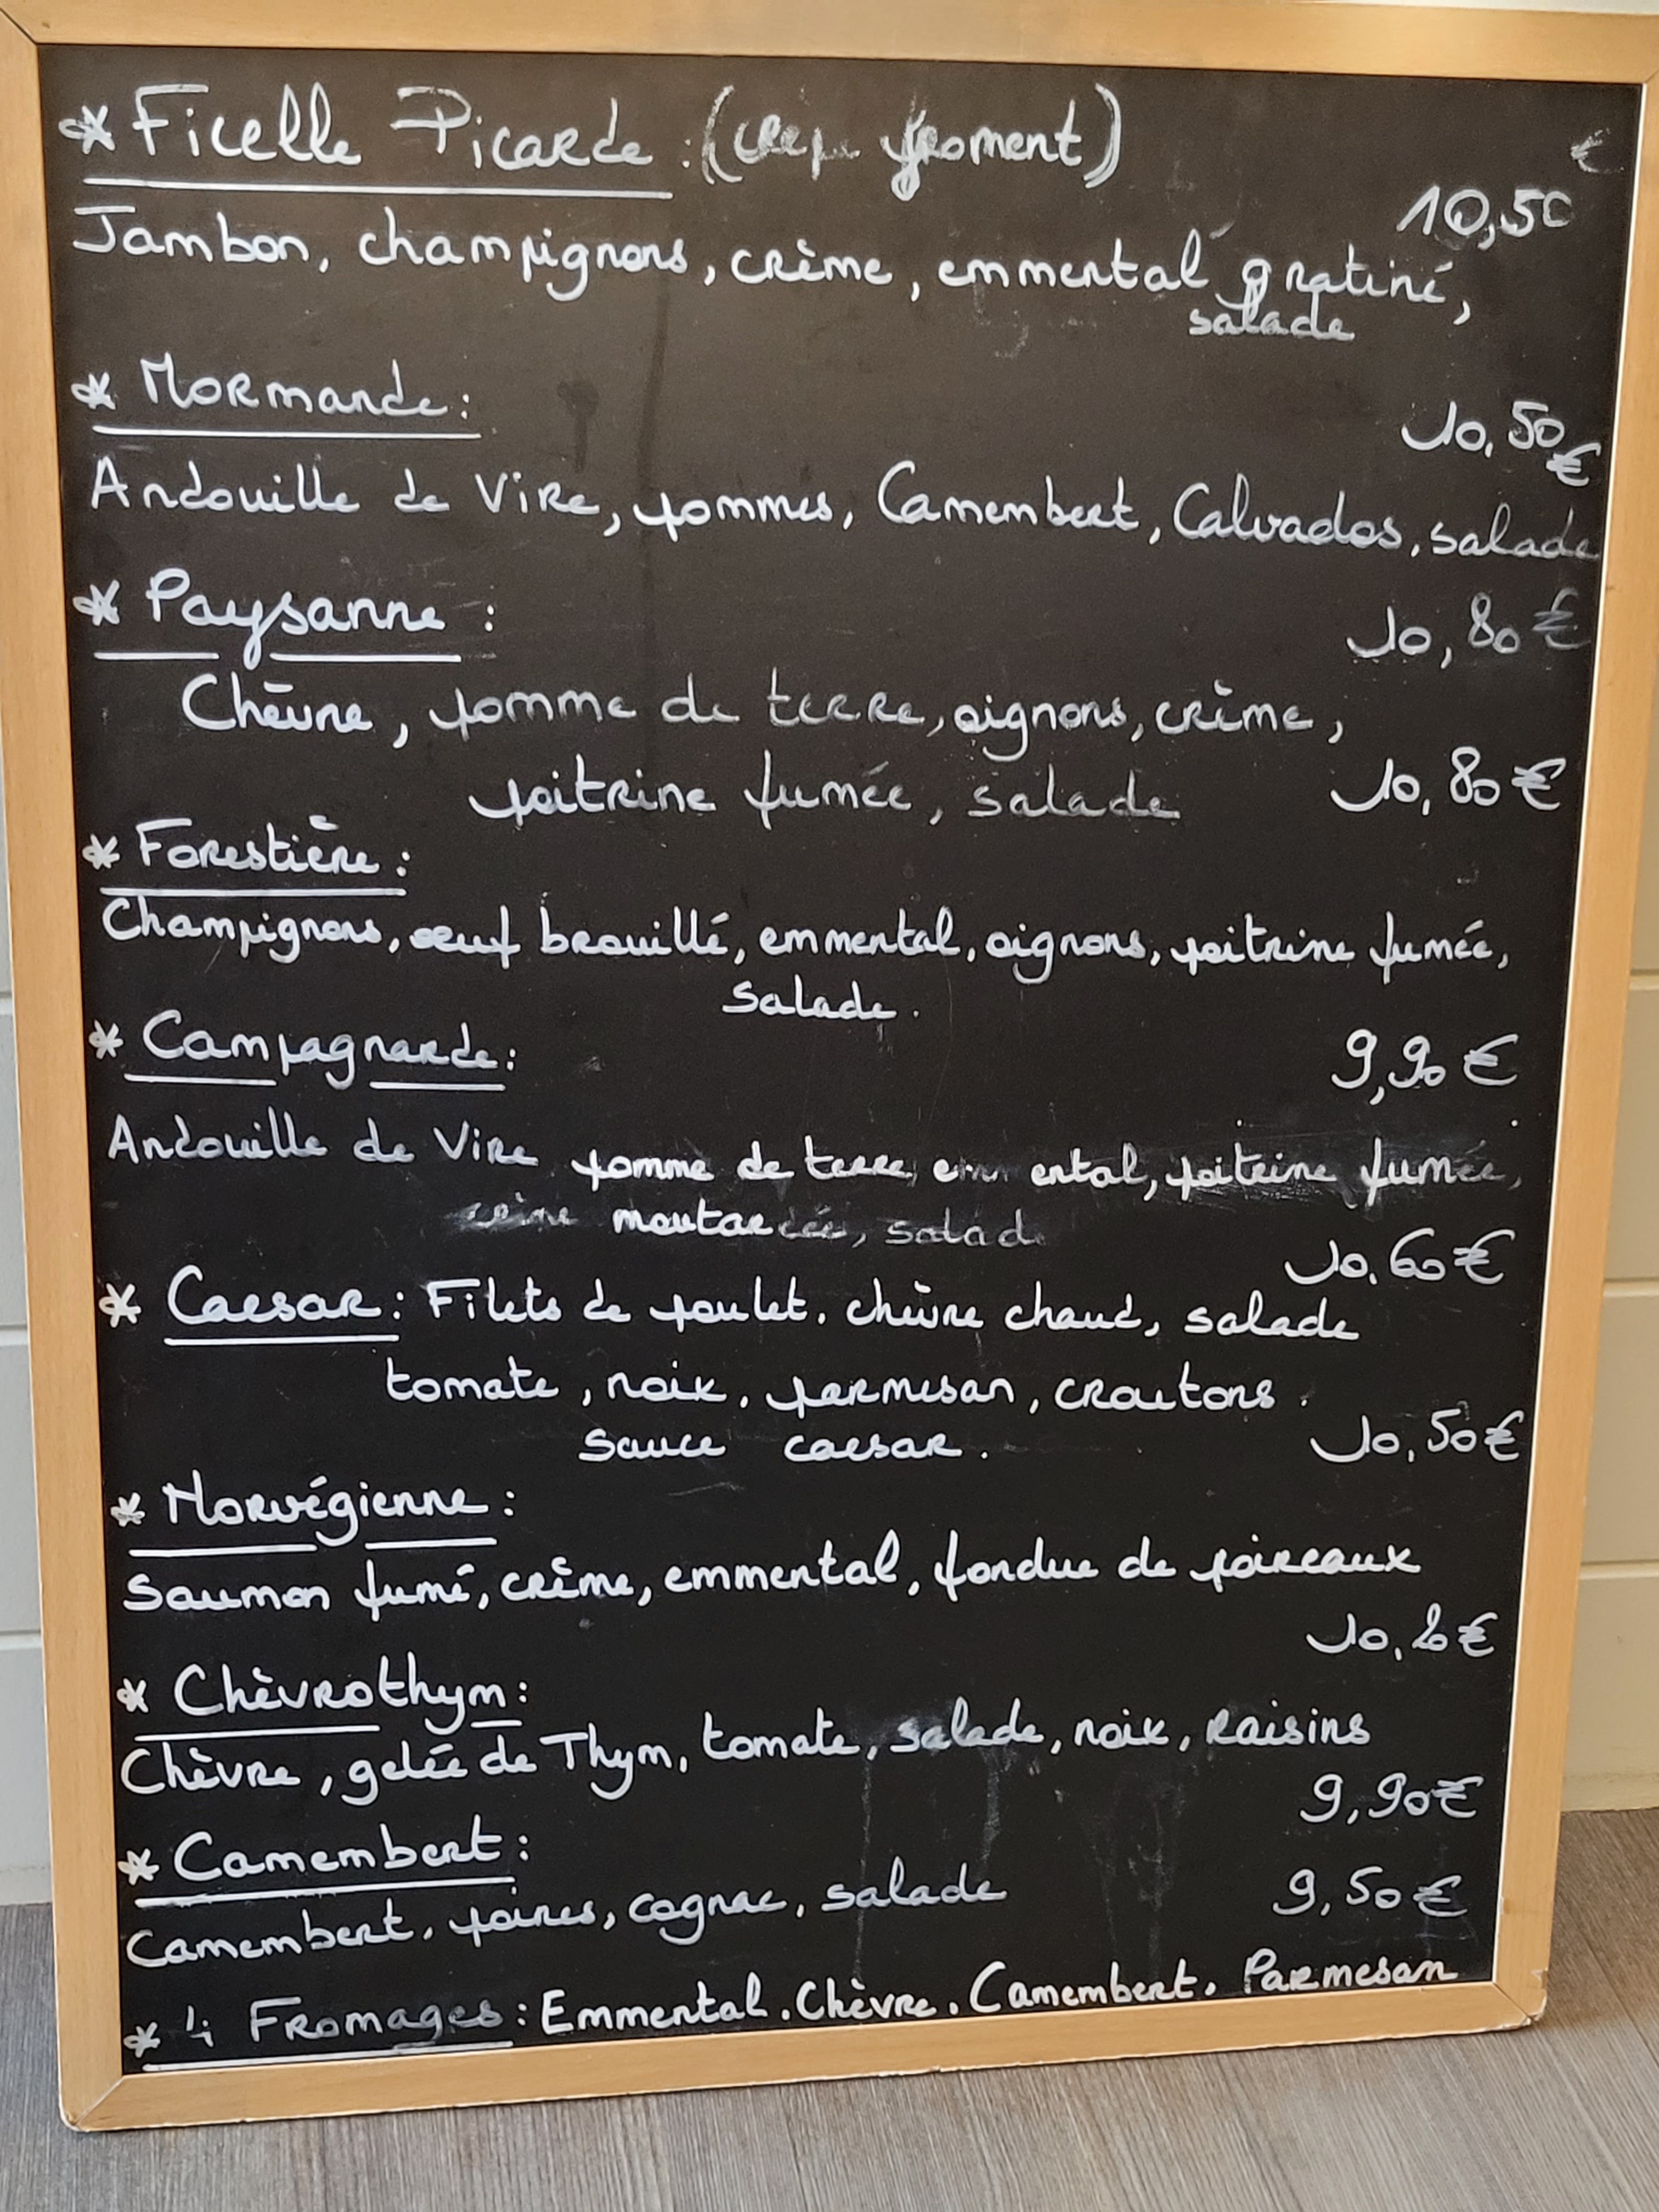 * Ficelle Picarde : (crêpe froment) €
10,50
Jambon, champignons, crème, emmental gratiné,
salade
* Normande : 10,50 €
Andouille de Vire, pommes, Camembert, Calvados, salade
* Paysanne : 10,80 €
Chèvre, pomme de terre, oignons, crème,
poitrine fumée, salade 10,80 €
* Forestière :
Champignons, œuf brouillé, emmental, oignons, poitrine fumée,
salade.
* Campagnarde : 9,90 €
Andouille de Vire pomme de terre, emmental, poitrine fumée,
crème moutardée, salade
10,60 €
* Caesar : Filets de poulet, chèvre chaud, salade
tomate, noix, parmesan, croutons.
sauce caesar. 10,50 €
* Norvégienne :
Saumon fumé, crème, emmental, fondue de poireaux
€
* Chèvrothym :
Chèvre, gelée de Thym, tomate, salade, noix, raisins
9,90 €
* Camembert :
Camembert, poires, cognac, salade 9,50 €
* 4 Fromages : Emmental. Chèvre. Camembert. Parmesan